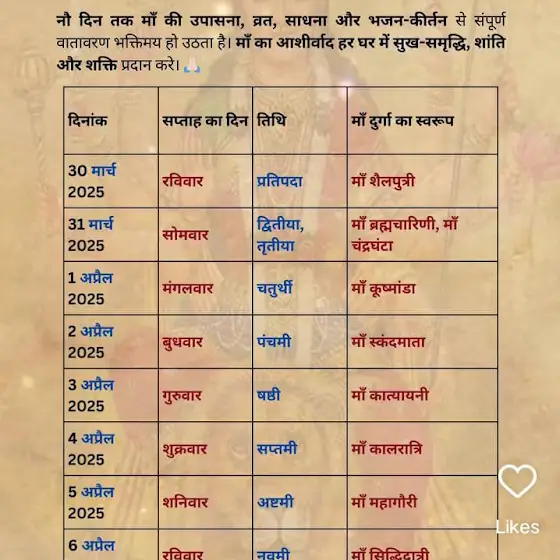 नौ दिन तक माँ की उपासना, व्रत, साधना और भजन-कीर्तन से संपूर्ण
वातावरण भक्तिमय हो उठता है। माँ का आशीर्वाद हर घर में सुख-समृद्धि, शांति
और शक्ति प्रदान करे। 🙏🏻
दिनांक सप्ताह का दिन तिथि माँ दुर्गा का स्वरूप
30 मार्च
2025 रविवार प्रतिपदा माँ शैलपुत्री
31 मार्च
2025 सोमवार द्वितीया,
तृतीया माँ ब्रह्मचारिणी, माँ
चंद्रघंटा
1 अप्रैल
2025 मंगलवार चतुर्थी माँ कूष्मांडा
2 अप्रैल
2025 बुधवार पंचमी माँ स्कंदमाता
3 अप्रैल
2025 गुरुवार षष्ठी माँ कात्यायनी
4 अप्रैल
2025 शुक्रवार सप्तमी माँ कालरात्रि
5 अप्रैल
2025 शनिवार अष्टमी माँ महागौरी
6 अप्रैल
रविवार नवमी माँ सिद्धिदात्री
Likes